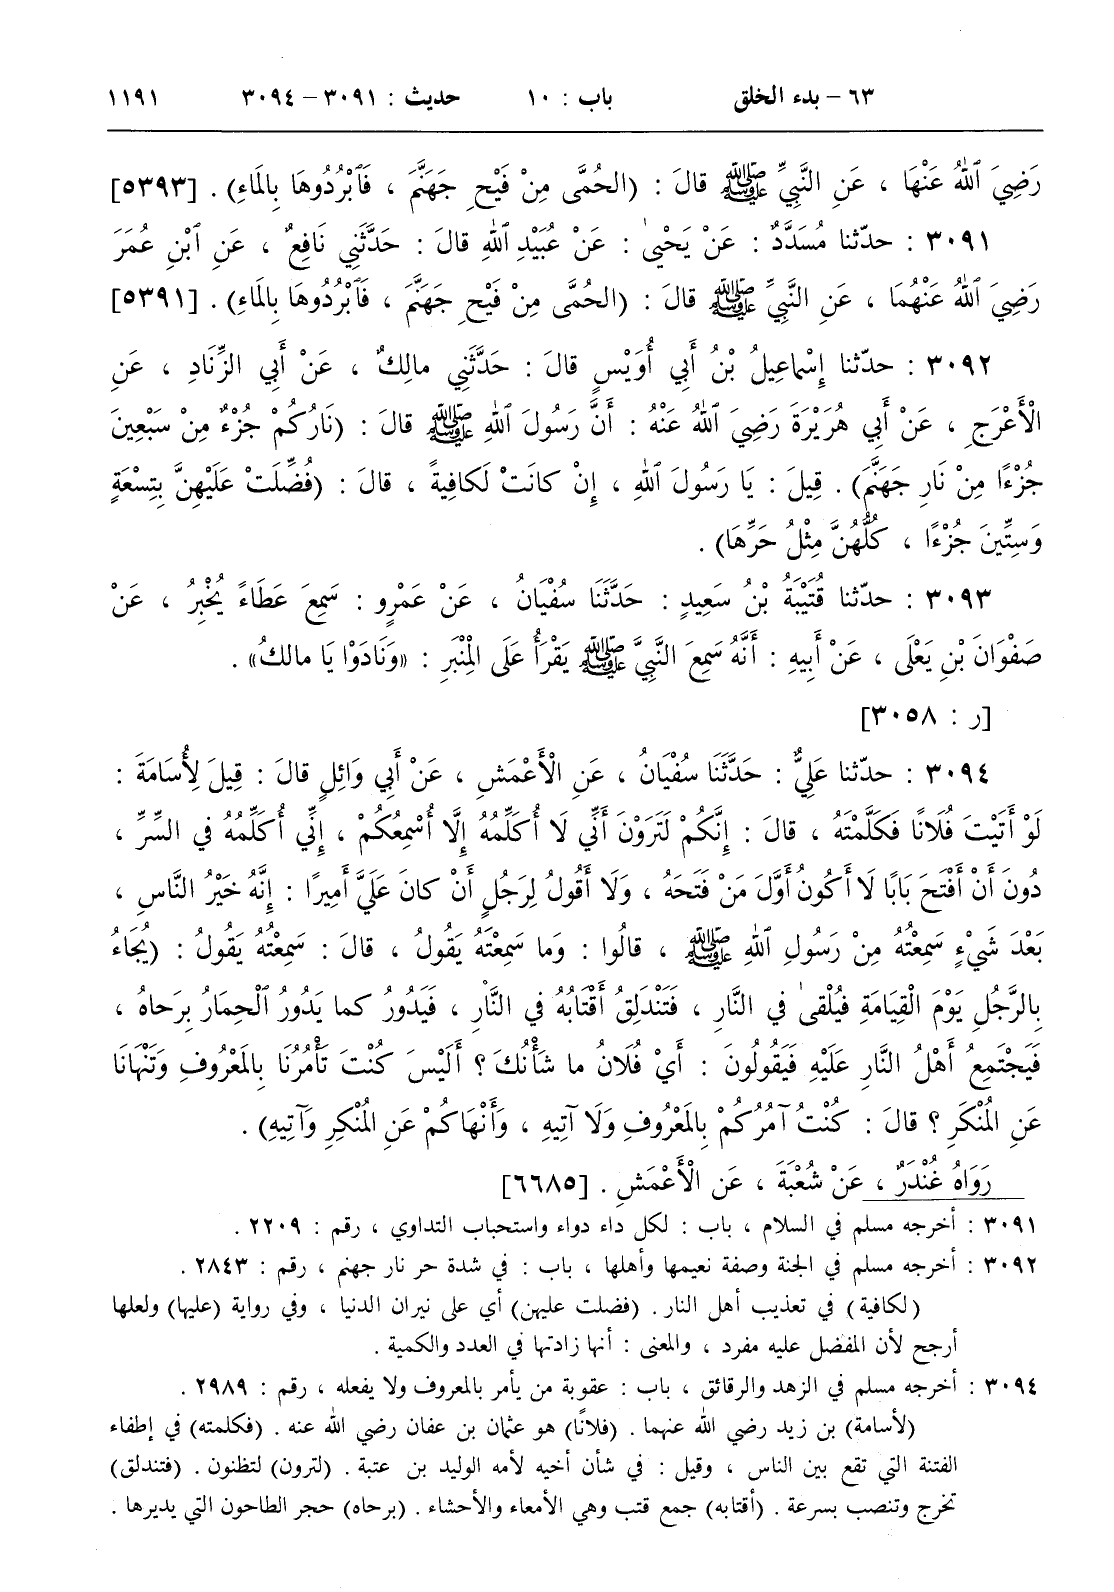 ٦٣ – بدء الخلق باب : ١٠ حديث : ٣٠٩١ – ٣٠٩٤ ١١٩١
رَضِيَ ٱللهُ عَنْهَا ، عَنِ النَّبِيِّ ﷺ قالَ : (الحُمَّى مِنْ فَيْحِ جَهَنَّمَ ، فَٱبْرُدُوهَا بِالمَاءِ) . [٥٣٩٣]
٣٠٩١ : حدّثنا مُسَدَّدٌ : عَنْ يَحْيىٰ : عَنْ عُبَيْدِ ٱللهِ قالَ : حَدَّثَنِي نَافِعٌ ، عَنِ ٱبْنِ عُمَرَ
رَضِيَ ٱللهُ عَنْهُمَا ، عَنِ النَّبِيِّ ﷺ قالَ : (الحُمَّى مِنْ فَيْحِ جَهَنَّمَ ، فَٱبْرُدُوهَا بِالمَاءِ) . [٥٣٩١]
٣٠٩٢ : حدّثنا إِسْماعِيلُ بْنُ أَبِي أُوَيْسٍ قالَ : حَدَّثَنِي مالِكٌ ، عَنْ أَبِي الزِّنَادِ ، عَنِ
الْأَعْرَجِ ، عَنْ أَبِي هُرَيْرَةَ رَضِيَ ٱللهُ عَنْهُ : أَنَّ رَسُولَ ٱللهِ ﷺ قالَ : (نَارُكُمْ جُزْءٌ مِنْ سَبْعِينَ
جُزْءًا مِنْ نَارِ جَهَنَّمَ) . قِيلَ : يَا رَسُولَ ٱللهِ ، إِنْ كانَتْ لَكافِيةً ، قالَ : (فُضِّلَتْ عَلَيْهِنَّ بِتِسْعَةٍ
وَسِتِّينَ جُزْءًا ، كُلُّهُنَّ مِثْلُ حَرِّهَا) .
٣٠٩٣ : حدّثنا قُتَيْبَةُ بْنُ سَعِيدٍ : حَدَّثَنَا سُفْيَانُ ، عَنْ عَمْرٍو : سَمِعَ عَطَاءً يُخْبِرُ ، عَنْ
صَفْوَانَ بْنِ يَعْلَى ، عَنْ أَبِيهِ : أَنَّهُ سَمِعَ النَّبِيَّ ﷺ يَقْرَأُ عَلَى الْمِنْبَرِ : «وَنَادَوْا يَا مالكُ» .
[ر : ٣٠٥٨]
٣٠٩٤ : حدّثنا عَلِيٌّ : حَدَّثَنَا سُفْيَانُ ، عَنِ الْأَعْمَشِ ، عَنْ أَبِي وَائِلٍ قالَ : قِيلَ لِأُسَامَةَ :
لَوْ أَتَيْتَ فُلَانًا فَكَلَّمْتَهُ ، قالَ : إِنَّكُمْ لَتَرَوْنَ أَنِّي لَا أُكَلِّمُهُ إِلَّا أُسْمِعُكُمْ ، إِنِّي أُكَلِّمُهُ فِي السِّرِّ ،
دُونَ أَنْ أَفْتَحَ بَابًا لَا أَكُونُ أَوَّلَ مَنْ فَتَحَهُ ، وَلَا أَقُولُ لِرَجُلٍ أَنْ كانَ عَلَيَّ أَمِيرًا : إِنَّهُ خَيْرُ النَّاسِ ،
بَعْدَ شَيْءٍ سَمِعْتُهُ مِنْ رَسُولِ ٱللهِ ﷺ ، قالُوا : وَما سَمِعْتَهُ يَقُولُ ، قالَ : سَمِعْتُهُ يَقُولُ : (يُجَاءُ
بِالرَّجُلِ يَوْمَ الْقِيَامَةِ فَيُلْقىٰ فِي النَّارِ ، فَتَنْدَلِقُ أَقْتَابُهُ فِي النَّارِ ، فَيَدُورُ كما يَدُورُ ٱلْحِمَارُ بِرَحاهُ ،
فَيَجْتَمِعُ أَهْلُ النَّارِ عَلَيْهِ فَيَقُولُونَ : أَيْ فُلَانُ ما شَأْنُكَ ؟ أَلَيْسَ كُنْتَ تَأْمُرُنَا بِالمَعْرُوفِ وَتَنْهَانَا
عَنِ المُنْكَرِ ؟ قالَ : كُنْتُ آمُرُكُمْ بِالمَعْرُوفِ وَلَا آتِيهِ ، وَأَنْهَاكُمْ عَنِ المُنْكِرِ وَآتِيهِ) .
رَوَاهُ غُنْدَرٌ ، عَنْ شُعْبَةَ ، عَنِ الْأَعْمَشِ . [٦٦٨٥]
٣٠٩١ : أخرجه مسلم في السلام ، باب : لكل داء دواء واستحباب التداوي ، رقم : ٢٢٠٩ .
٣٠٩٢ : أخرجه مسلم في الجنة وصفة نعيمها وأهلها ، باب : في شدة حر نار جهنم ، رقم : ٢٨٤٣ .
(لكافية) في تعذيب أهل النار . (فضلت عليهن) أي على نيران الدنيا ، وفي رواية (عليها) ولعلها
أرجح لأن المفضل عليه مفرد ، والمعنى : أنها زادتها في العدد والكمية .
٣٠٩٤ : أخرجه مسلم في الزهد والرقائق ، باب : عقوبة من يأمر بالمعروف ولا يفعله ، رقم : ٢٩٨٩ .
(لأسامة) بن زيد رضي الله عنهما . (فلانًا) هو عثمان بن عفان رضي الله عنه . (فكلمته) في إطفاء
الفتنة التي تقع بين الناس ، وقيل : في شأن أخيه لأمه الوليد بن عتبة . (لترون) لتظنون . (فتندلق)
تخرج وتنصب بسرعة . (أقتابه) جمع قتب وهي الأمعاء والأحشاء . (برحاه) حجر الطاحون التي يديرها .